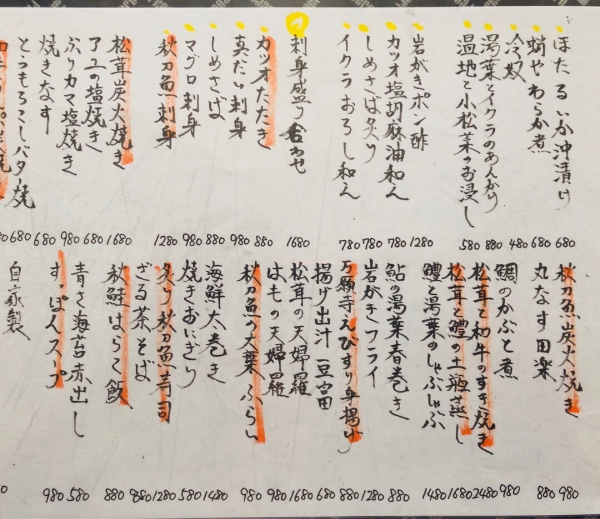 ほたるいか沖漬け 680
蛸やわらか煮 680
冷奴 480
湯葉とイクラのあんかけ 880
湿地と小松菜のお浸し 580
岩がきポン酢 1280
カツオ塩胡麻油和え 780
しめさば炙り 780
イクラおろし和え 780
刺身盛り合わせ 1680
カツオたたき 880
真だい刺身 980
しめさば 880
マグロ刺身 980
秋刀魚刺身 1280
松茸炭火焼き 1680
アユの塩焼き 980
ぶりカマ塩焼き 980
焼きなす 680
とうもろこしバター焼 680
秋刀魚炭火焼き 980
丸なす田楽 880
鯛のかぶと煮 980
松茸と和牛のすき焼き 2480
松茸と鱧の土瓶蒸し 1680
鱧と湯葉のしゃぶしゃぶ 1480
鮎の湯葉春巻き 880
岩がきフライ 1280
万願寺えびすり身揚げ 880
揚げ出汁豆冨 680
松茸の天婦羅 1680
はもの天婦羅 980
秋刀魚の大葉ふらい 980
海鮮太巻き 1480
焼きおにぎり 580
炙り秋刀魚寿司 1280
ざる茶そば
秋鮭はらこ飯 880
青さ海苔赤出し 580
すっぽんスープ 980
自家製